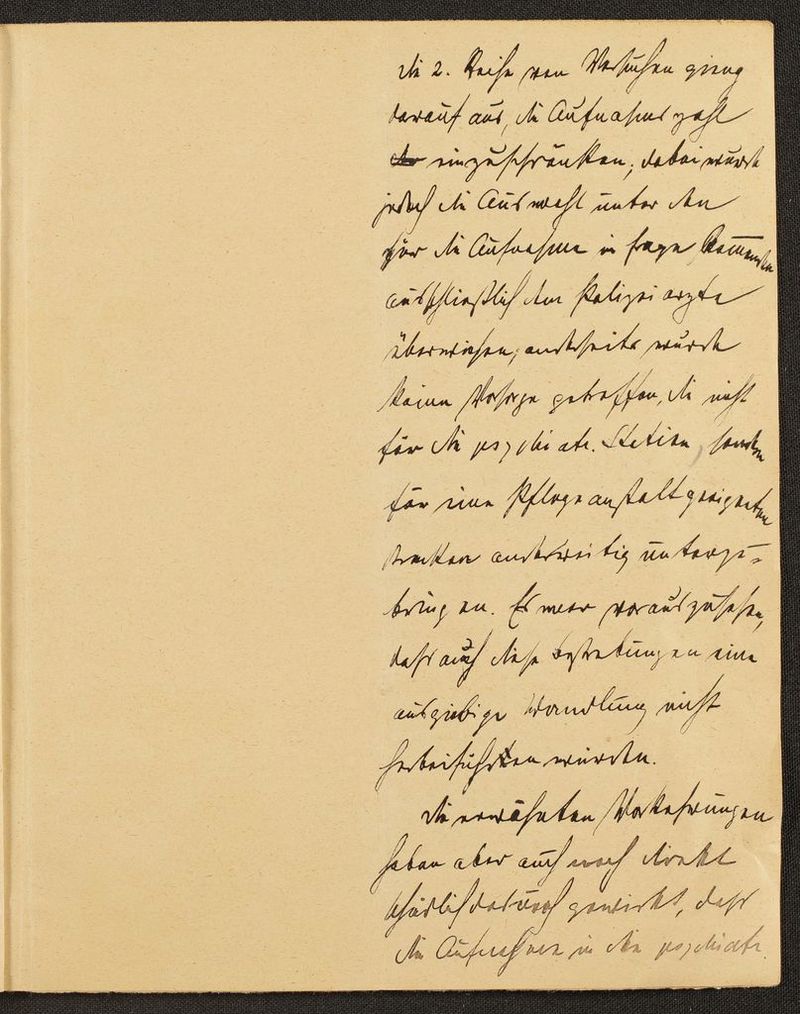 Die 2. Reihe von Versuchen gieng
darauf aus, die Aufnahmszahl
einzuschränken; dabei wurde
jedoch die Auswahl unter den
für die Aufnahme in frage kommenden
ausschließlich dem Polizeiarzte
überwiesen; anderseits wurde
keine Vorsorge getroffen, die nicht
für die psychiatr. Station, sondern
für eine Pflegeanstalt geeigneten
Kranken anderweitig unterzu-
bringen. Es war vorauszusehen,
daß auch diese Bestrebungen eine
ausgiebige Wandlung nicht
herbeiführen würden.
Die erwähnten Vorkehrungen
haben aber auch noch direkt
schädlich dadurch gewirkt, daß
die Aufnahmen in die psychiatr.